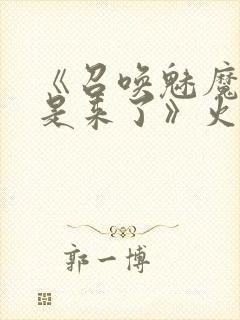 《召唤魅魔
是来了》火
郭一博